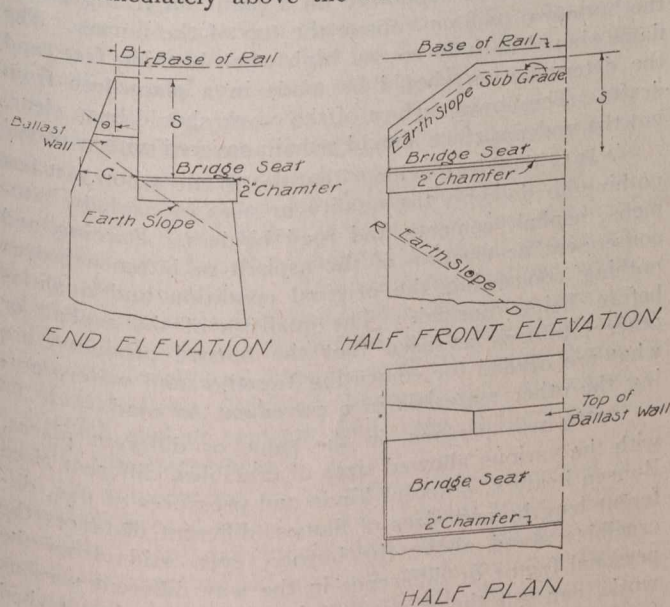 mediately above the
B
Base of Rail
θ
S
Ballast
Wall
Bridge Seat
C
2" Chamfer
Earth Slope
END ELEVATION
Base of Rail
Sub Grade
Earth Slope
S
Bridge Seat
2" Chamfer
R Earth Slope D
HALF FRONT ELEVATION
Top of
Ballast Wall
Bridge Seat
2" Chamfer
HALF PLAN